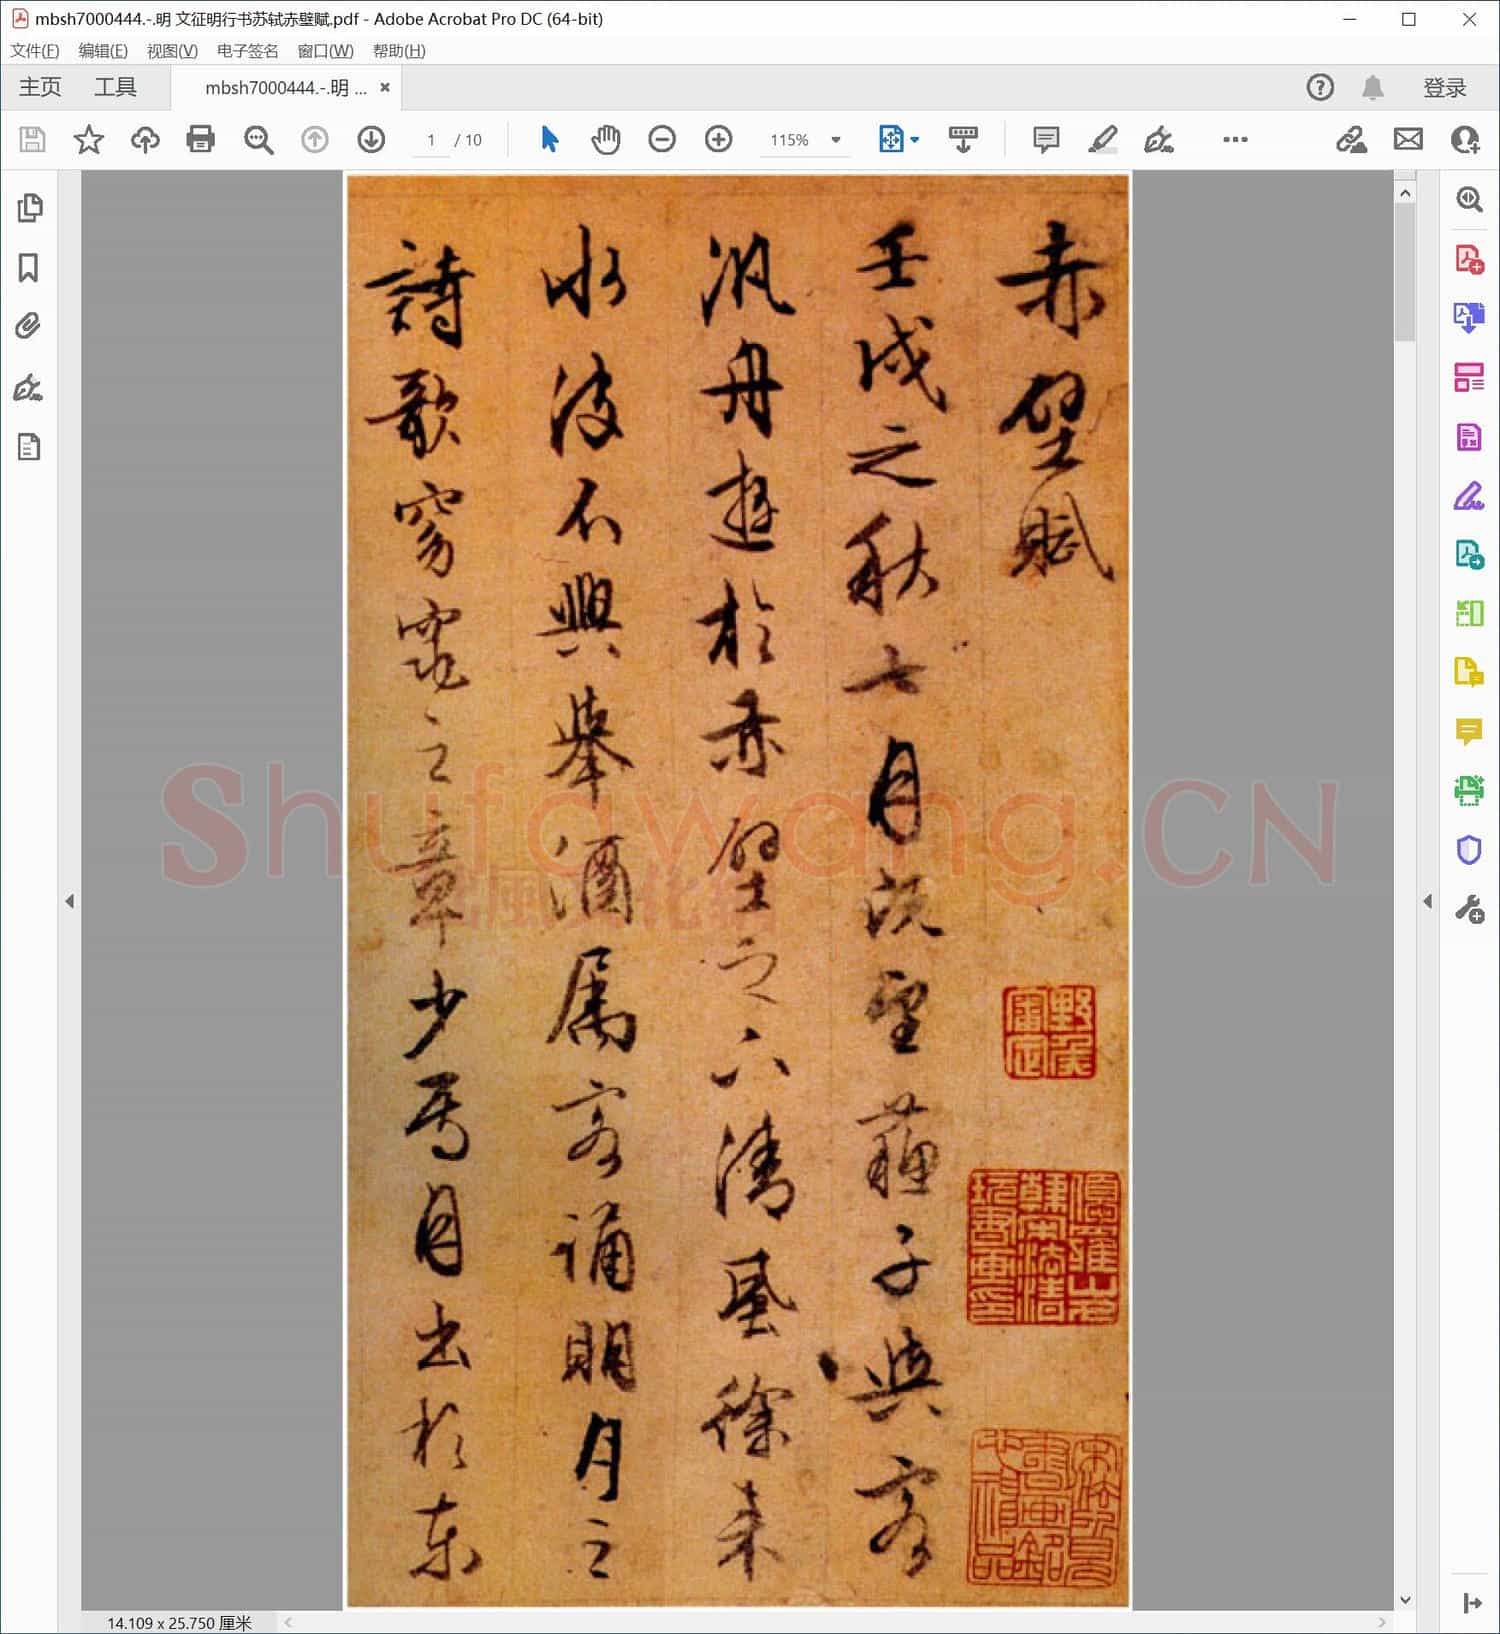 mbsh7000444.-.明 文征明行书苏轼赤壁赋.pdf - Adobe Acrobat Pro DC (64-bit)
文件(F) 编辑(E) 视图(V) 电子签名 窗口(W) 帮助(H)
主页 工具 mbsh7000444.-.明 ... 登录
1 / 10 115%
赤壁賦
壬戌之秋七月既望蘓子與客
汎舟遊於赤壁之下清風徐来
水波不興舉酒属客誦明月之
詩歌窈窕之章少焉月出於东
野侯審定
Shufawang.CN
14.109 x 25.750 厘米